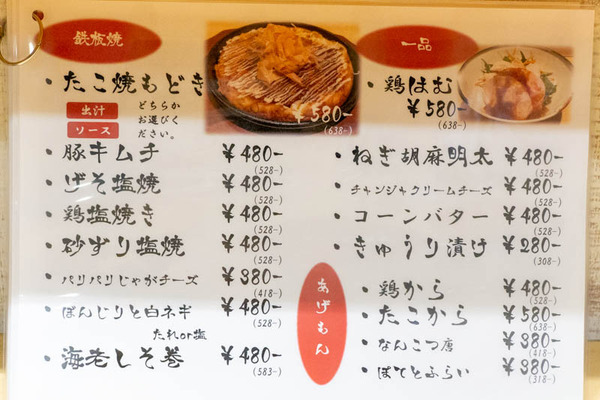 鉄板焼
・たこ焼もどき
出汁
ソース
どちらか
お選びく
ださい。
¥580-
(638-)
・豚キムチ ¥480-
(528-)
・げそ塩焼 ¥480-
(528-)
・鶏塩焼き ¥480-
(528-)
・砂ずり塩焼 ¥480-
(528-)
・パリパリじゃがチーズ ¥380-
(418-)
・ぼんじりと白ネギ ¥480-
(528-)
たれor塩
・海老しそ巻 ¥480-
(583-)
一品
・鶏はむ
¥580-
(638-)
・ねぎ胡麻明太 ¥480-
(528-)
・チャンジャクリームチーズ ¥480-
(528-)
・コーンバター ¥480-
(528-)
・きゅうり漬け ¥280-
(308-)
あげもん
・鶏から ¥480-
(528-)
・たこから ¥580-
(638-)
・なんこつ唐 ¥380-
(418-)
・ぽてとふらい ¥380-
(318-)